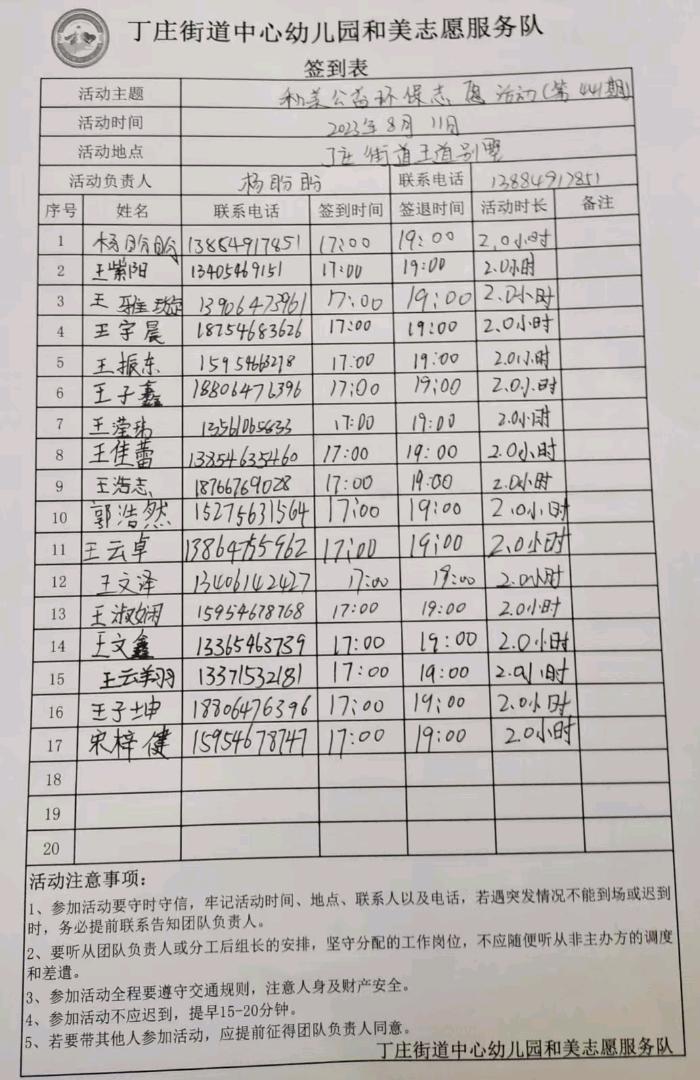 丁庄街道中心幼儿园和美志愿服务队
签到表
活动主题 和美公益环保志愿活动(第441期)
活动时间 2023年8月11日
活动地点 丁庄街道王道别墅
活动负责人 杨盼盼 联系电话 13884917851
序号 姓名 联系电话 签到时间 签退时间 活动时长 备注
1 杨盼盼 13884917851 17:00 19:00 2.0小时
2 王紫阳 13405469151 17:00 19:00 2.0小时
3 王雅璇 13906473961 17:00 19:00 2.0小时
4 王宇晨 18754683626 17:00 19:00 2.0小时
5 王振东 15954663278 17:00 19:00 2.0小时
6 王子鑫 18806476396 17:00 19:00 2.0小时
7 王滢瑞 13561065633 17:00 19:00 2.0小时
8 王佳蕾 13854635460 17:00 19:00 2.0小时
9 王浩志 18766769028 17:00 19:00 2.0小时
10 郭浩然 15275631564 17:00 19:00 2.0小时
11 王云卓 13864755962 17:00 19:00 2.0小时
12 王文泽 13406142427 17:00 19:00 2.0小时
13 王淑娴 15954678768 17:00 19:00 2.0小时
14 王文鑫 13365463739 17:00 19:00 2.0小时
15 王云翔 13371532181 17:00 19:00 2.0小时
16 王子坤 18806476396 17:00 19:00 2.0小时
17 宋梓健 15954678747 17:00 19:00 2.0小时
18
19
20
活动注意事项：
1、参加活动要守时守信，牢记活动时间、地点、联系人以及电话，若遇突发情况不能到场或迟到
时，务必提前联系告知团队负责人。
2、要听从团队负责人或分工后组长的安排，坚守分配的工作岗位，不应随便听从非主办方的调度
和差遣。
3、参加活动全程要遵守交通规则，注意人身及财产安全。
4、参加活动不应迟到，提早15-20分钟。
5、若要带其他人参加活动，应提前征得团队负责人同意。
丁庄街道中心幼儿园和美志愿服务队